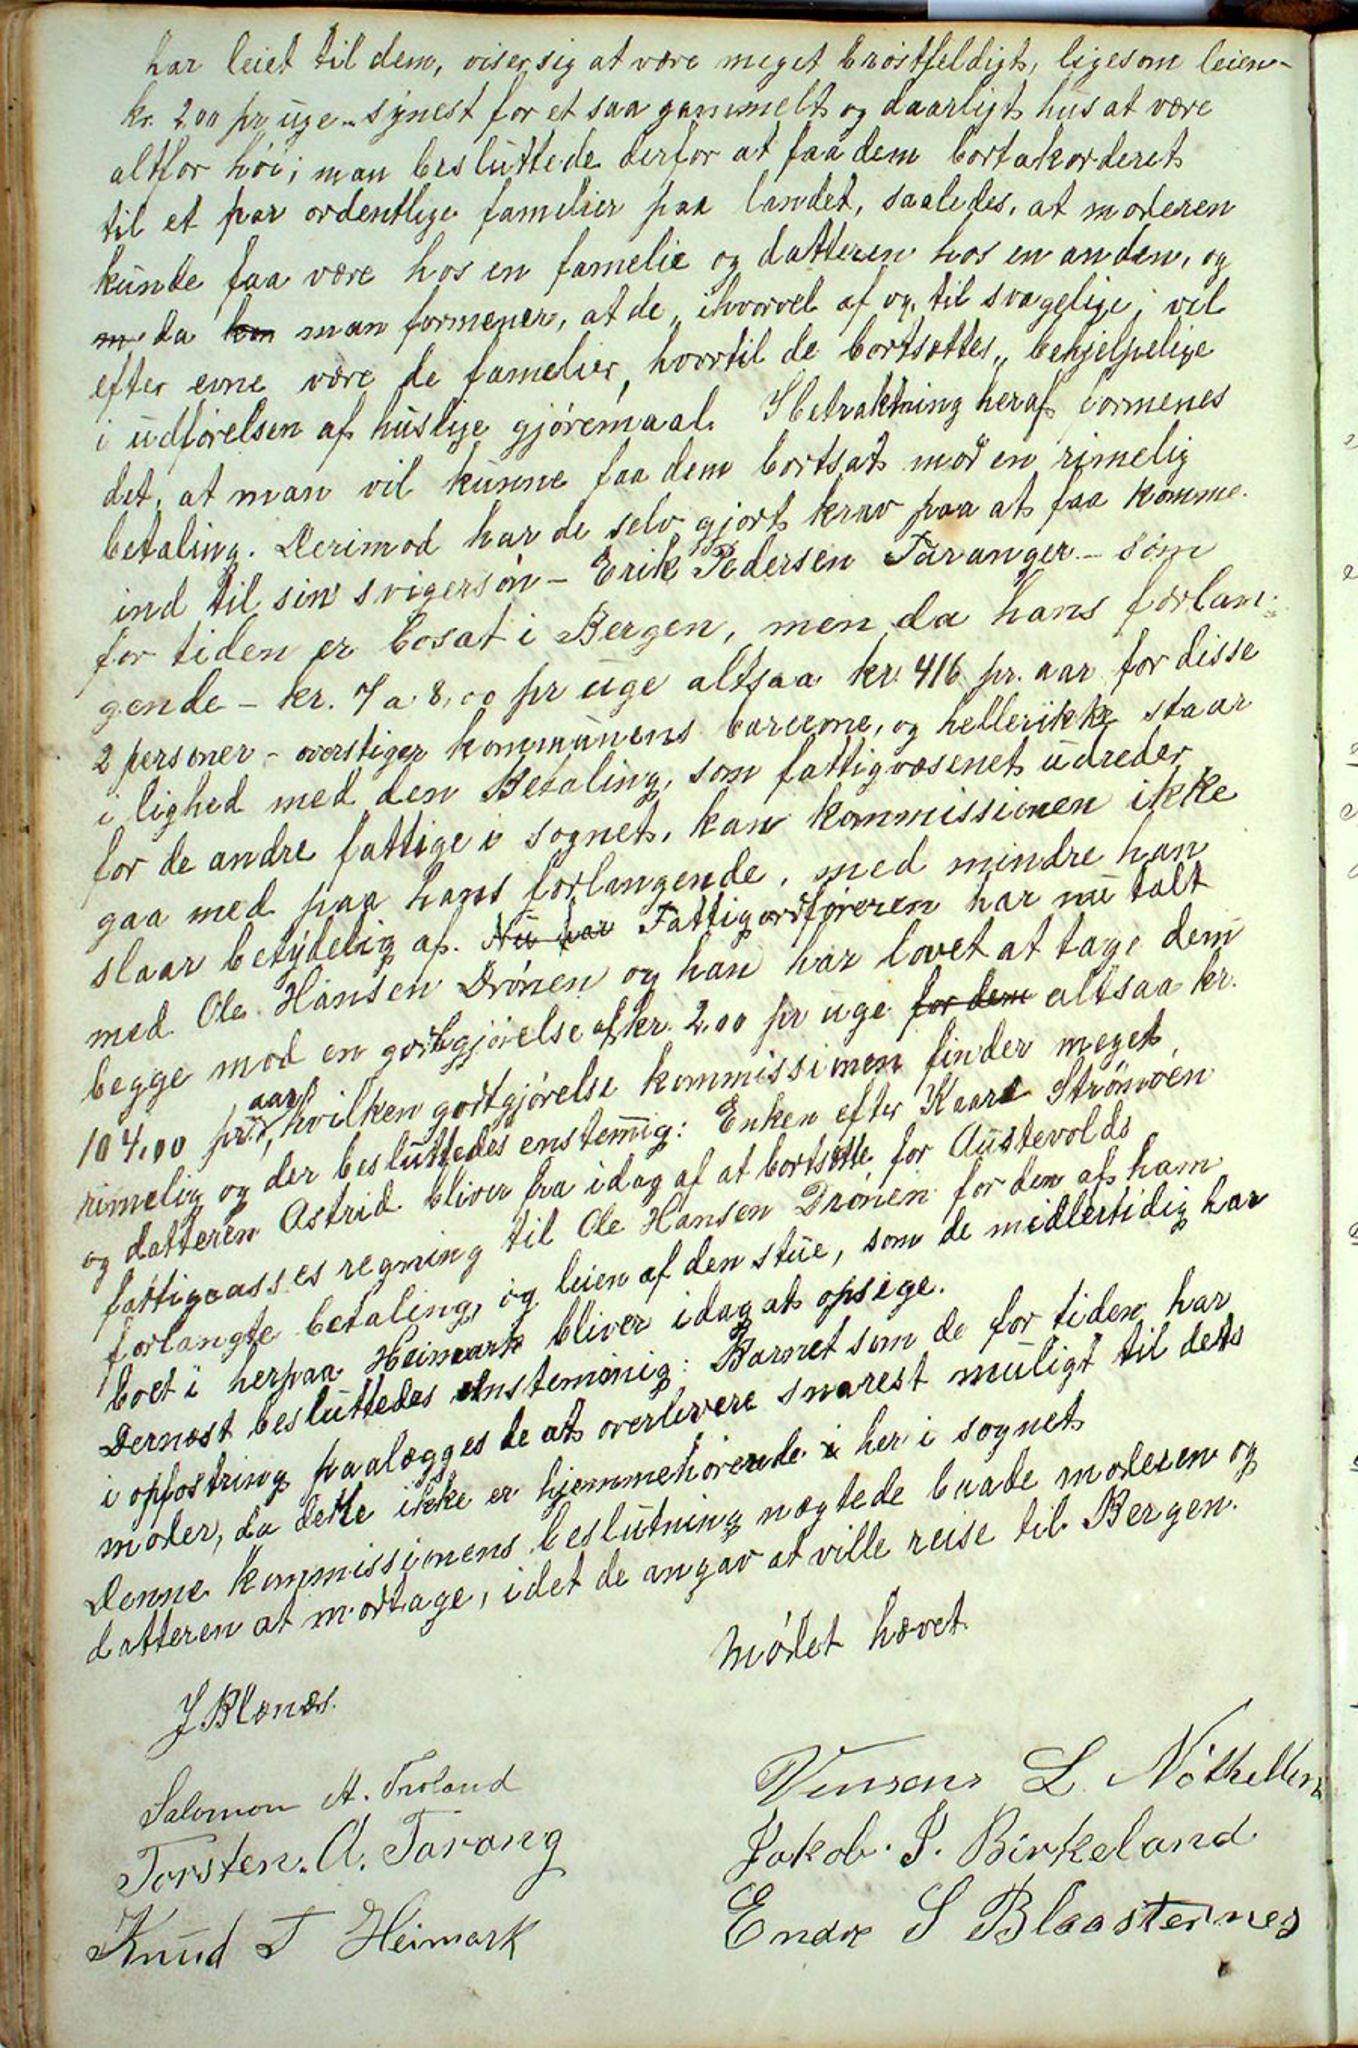 har leiet til dem, viser sig at være meget brøstfeldigt, ligesom leien-
kr. 2.00 pr uge - synest for et saa gammelt og daarligt hus at være
altfor høi; man besluttede derfor at faa dem bortakorderet
til et par ordentlige familier paa landet, saaledes, at moderen
kunde faa være hos en famelie og datteren hos en anden, og
m da kan man formener, at de, ihvorvel af og til svagelige, vil
efter evne være de famelier, hvortil de bortsættes, behjelpelige
i udførelsen af huslige gjøremaal. I betraktning heraf formenes
det, at man vil kunne faa dem bortsat mod en rimelig
betaling. Derimod har de selv gjort krav paa at faa komme
ind til sin svigersøn - Erik Pedersen Taranger - som
for tiden er bosat i Bergen, men da hans forlan-
gende - kr. 7 a 8,00 pr uge altsaa kr. 416 pr. aar for disse
2 personer - overstiger kommunens bæreevne, og heller ikke staar
i lighed med den Betaling, som fattigvæsenet udreder
for de andre fattige i sognet, kan kommissionen ikke
gaa med paa hans forlangende, med mindre han
slaar betydelig af. Nu har Fattigordføreren har nu talt
med Ole Hansen Drønen og han har lovet at tage dem
begge mod en godtgjørelse af kr. 2.00 pr uge for dem altsaa kr.
104,00 pr. aar, hvilken godtgjørelse kommissionen finder meget
rimelig og der besluttedes enstemig: Enken efter Kaare Strømøen
og datteren Astrid bliver fra idag af at bortsætte for Austevolds
fattigcasses regning til Ole Hansen Drønen for den af ham
forlangte betaling, og leien af den stue, som de midlertidig har
boet i herpaa Heimark bliver idag at opsige.
Dernæst besluttedes enstemmig: Barnet som de for tiden har
i opfostring paalægges de at overlevere snarest muligt til dets
moder, da dette ikke er hjemmehørende i her i sognet
Denne kommissionens beslutning nægtede baade moderen og
datteren at modtage, idet de angav at ville reise til Bergen.
Mødet hævet.
J Blænæs.
Salomon A. Troland
Vinsens L. Nøthellen
Torsten. A. Tarang
Jakob. J. Birkeland
Knud T Heimark
Endre S Blaasternes